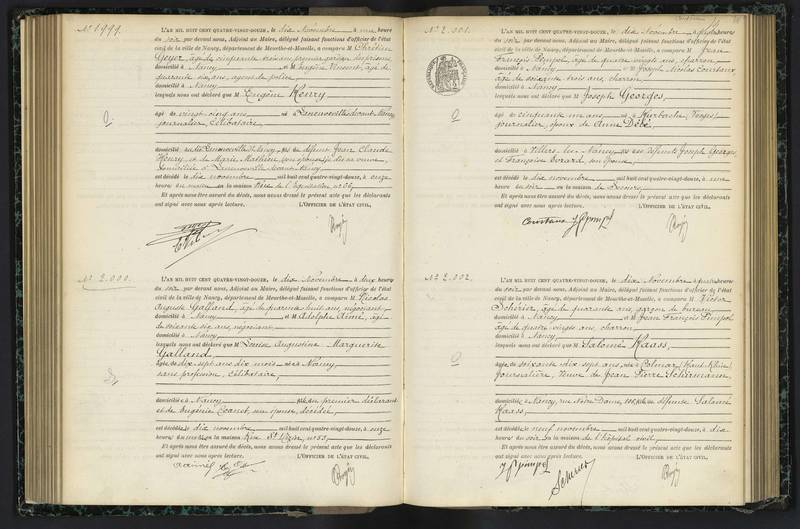 N° 1999.
L'AN MIL HUIT CENT QUATRE-VINGT-DOUZE, le dix Novembre à une heure
du soir par devant nous, Adjoint au Maire, délégué faisant fonctions d'officier de l'état
civil de la ville de Nancy, département de Meurthe-et-Moselle, a comparu M Chrétien
Geyer, âgé de cinquante trois ans, premier
domicilié à Nancy et M Eugène Vincent, âgé de
quarante six ans, agent de police,
domicilié à Nancy
lesquels nous ont déclaré que M Eugène Henry
âgé de vingt cinq ans né à Laneuveville devant Nancy
journalier, célibataire,
domicilié à Laneuveville dt Nancy fils du défunt Jean Claude
Henry, et de Marie Mathieu, son épouse, sa veuve
domiciliée à Laneuveville devant Nancy
est décédé le dix novembre mil huit cent quatre-vingt-douze, à onze
heures du matin en la maison Rue de l'Equitation n° 26,
Et après nous être assuré du décès, nous avons dressé le présent acte que les déclarants
ont signé avec nous après lecture. L'OFFICIER DE L'ÉTAT CIVIL,
N° 2.000.
L'AN MIL HUIT CENT QUATRE-VINGT-DOUZE, le dix Novembre à deux heures
du soir par devant nous, Adjoint au Maire, délégué faisant fonctions d'officier de l'état
civil de la ville de Nancy, département de Meurthe-et-Moselle, a comparu M Nicolas
Auguste Galland, âgé de quarante huit ans, négociant,
domicilié à Nancy et M Adolphe Aimé, âgé
de soixante six ans, négociant,
domicilié à Nancy
lesquels nous ont déclaré que M Louise Augustine Marguerite
Galland,
âgée de dix sept ans dix mois née à Nancy,
sans profession, célibataire,
domiciliée à Nancy fille du premier déclarant
et de Eugénie son épouse, décédée,
est décédée le dix novembre mil huit cent quatre-vingt-douze, à onze
heures du matin en la maison Rue St Dizier, n° 53,
Et après nous être assuré du décès, nous avons dressé le présent acte que les déclarants
ont signé avec nous après lecture. L'OFFICIER DE L'ÉTAT CIVIL,
N° 2.001.
L'AN MIL HUIT CENT QUATRE-VINGT-DOUZE, le dix Novembre à heures
du soir par devant nous, Adjoint au Maire, délégué faisant fonctions d'officier de l'état
civil de la ville de Nancy, département de Meurthe-et-Moselle, a comparu M Jean
François Pimpol, âgé de quatre vingts ans, charron,
domicilié à Nancy et M Joseph Nicolas Constans,
âgé de soixante trois ans, charron,
domicilié à Nancy
lesquels nous ont déclaré que M Joseph Georges,
âgé de cinquante un ans, né à (Vosges)
journalier, époux de Anne Débé,
domicilié à Villers les Nancy, fils des défunts Joseph Georges
et Françoise Dorard, son épouse,
est décédé le dix novembre mil huit cent quatre-vingt-douze, à une
heure du soir en la maison de Secours,
Et après nous être assuré du décès, nous avons dressé le présent acte que les déclarants
ont signé avec nous après lecture. L'OFFICIER DE L'ÉTAT CIVIL,
N° 2.002.
L'AN MIL HUIT CENT QUATRE-VINGT-DOUZE, le dix Novembre à quatre heures
du soir par devant nous, Adjoint au Maire, délégué faisant fonctions d'officier de l'état
civil de la ville de Nancy, département de Meurthe-et-Moselle, a comparu M Victor
Scherier, âgé de quarante ans, garçon de bureau
domicilié à Nancy et M Jean François Pimpol,
âgé de quatre vingts ans, charron,
domicilié à Nancy
lesquels nous ont déclaré que M Salomé Haass,
âgée de soixante dix sept ans, née à Colmar (Haut-Rhin)
journalière, veuve de Jean Pierre Schürmann,
domiciliée à Nancy, rue Notre Dame, fille de défunt Salomé
Haass,
est décédée le neuf novembre mil huit cent quatre-vingt-douze, à dix
heures du soir en la maison de l'hôpital civil,
Et après nous être assuré du décès, nous avons dressé le présent acte que les déclarants
ont signé avec nous après lecture. L'OFFICIER DE L'ÉTAT CIVIL,